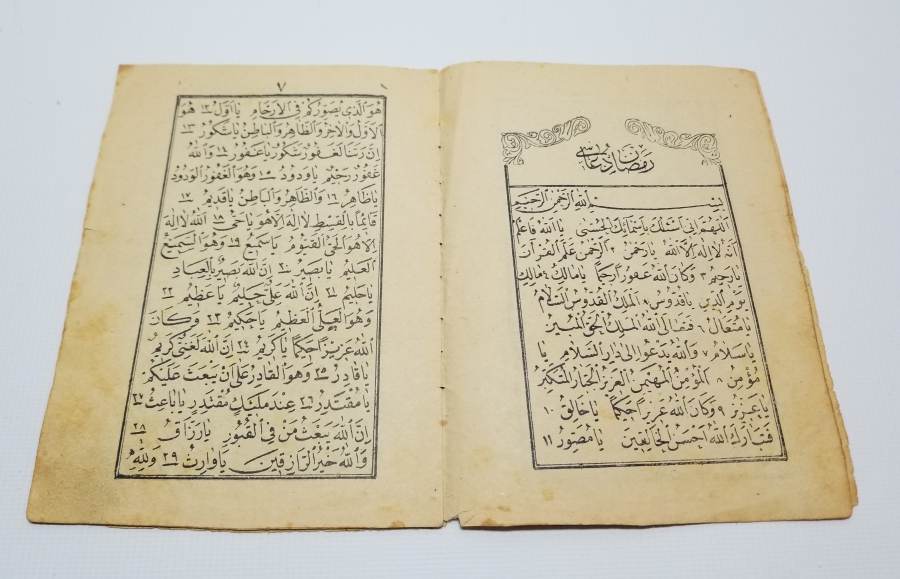 رمضان دعاسی
بسم الله الرحمن الرحيم
اللهم اني اسئلك باسمائك الحسنى يا الله فاعلم
انه لا اله الا الله يا رحمن ٢ الرحمن علم القرآن
يا رحيم ٣ وكان الله غفورا رحيما يا مالك ٤ مالك
يوم الدين يا قدوس ٥ الملك القدوس السلام
يا متعال ٦ فتعالى الله الملك الحق المبين
يا سلام ٧ والله يدعوا الى دار السلام يا
مؤمن ٨ المؤمن المهيمن العزيز الجبار المتكبر
يا عزيز ٩ وكان الله عزيزا حكيما يا خالق ١٠
فتبارك الله احسن الخالقين يا مصور ١١
٧
هو الذى يصوركم فى الارحام يا اول ١٢ هو
الاول والاخر والظاهر والباطن يا شكور ١٣
ان ربنا لغفور شكور يا غفور ١٤ والله
غفور رحيم يا ودود ١٥ وهو الغفور الودود
يا ظاهر ١٦ والظاهر والباطن يا قديم ١٧
قائما بالقسط لا اله الا هو يا حى ١٨ الله لا اله
الا هو الحى القيوم يا سميع ١٩ وهو السميع
العليم يا بصير ٢٠ ان الله بصير بالعباد
يا حليم ٢١ ان الله على حليم يا عظيم ٢٢
وهو العلى العظيم يا حكيم ٢٣ وكان
الله عزيزا حكيما يا كريم ٢٤ ان الله لغنى كريم
يا قادر ٢٥ وهو القادر على ان يبعث عليكم
يا مقتدر ٢٦ عند مليك مقتدر يا باعث ٢٧
ان الله يبعث من فى القبور يا رزاق ٢٨
والله خير الرازقين يا وارث ٢٩ ولله